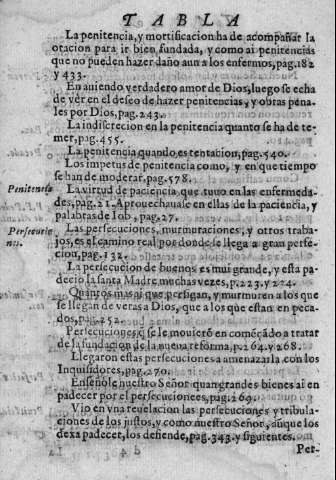 TABLA
La penitencia, y mortificacion ha de acompañar la
oracion para ir bien fundada, y como ai penitencias
que no pueden hazer daño aun a los enfermos, pag. 182
y 433.
En auiendo verdadero amor de Dios, luego se echa
de ver en el deseo de hazer penitencias, y obras pena
les por Dios, pag. 243.
La indiscrecion en la penitencia quanto se ha de te-
mer, pag. 455.
La penitencia quando es tentacion, pag. 540.
Los impetus de penitencia como, y en que tiempo
se han de moderar, pag. 578.
Penitencia
La virtud de paciencia que tuuo en las enfermeda-
des, pag. 21. Aprouechauase en ellas de la paciencia, y
palabras de Iob, pag. 27.
Persecucio
nes.
Las persecuciones, murmuraciones, y otros traba-
jos, es el camino real por donde se llega a gran perfe-
cion, pag. 132.
La persecucion de buenos es mui grande, y esta pa-
decio la santa Madre muchas vezes, p. 223. y 224.
Quantos mas ai que persigan, y murmuren a los que
se llegan de veras a Dios, que a los que estan en peca-
dos, pag. 252.
Persecuciones q̃ se le mouierō en comẽçādo a tratar
de la fundacion de la nueua reforma, p. 264. y 268.
Llegaron estas persecuciones a amenazarla con los
Inquisidores, pag. 270.
Enseñole nuestro Señor quan grandes bienes ai en
padecer por el persecuciones, pag. 269.
Vio en vna reuelacion las persecuciones y tribula-
ciones de los justos, y como nuestro Señor, aũque los
dexa padecer, los defiende, pag. 343. y siguientes.
Per-